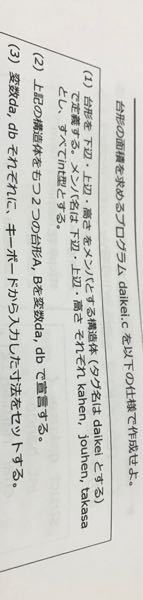 台形の面積を求めるプログラム daikei.c を以下の仕様で作成せよ。
(1) 台形を 下辺・上辺・高さ をメンバとする構造体 (タグ名は daikei とする)
で定義する。メンバ名は 下辺・上辺・高さ それぞれ kahen, jouhen, takasa
とし、すべてint型とする。
(2) 上記の構造体をもつ２つの台形A, Bを変数da, db で宣言する。
(3) 変数da, db それぞれに、キーボードから入力した寸法をセットする。